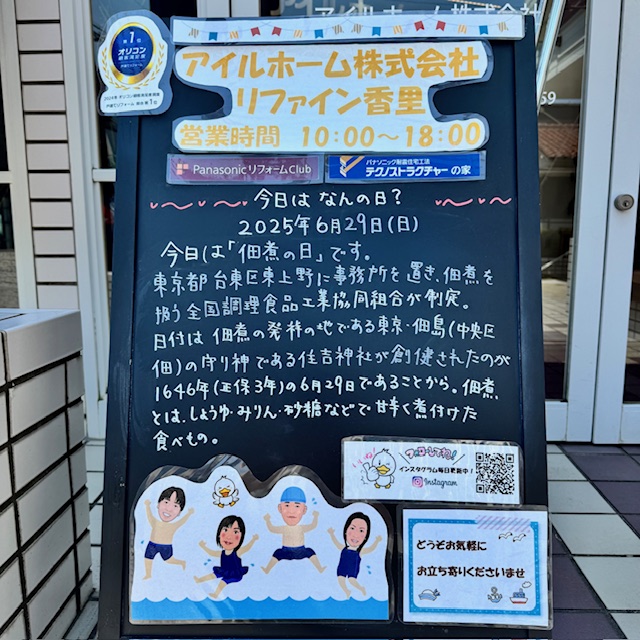 アイルホーム株式会社
第1位
オリコン
顧客満足度
戸建てリフォーム 総合第1位
アイルホーム株式会社
リファイン香里
営業時間 10:00～18:00
59
Panasonic リフォーム Club
パナソニック耐震住宅工法
テクノストラクチャーの家
今日は なんの日？
2025年6月29日(日)
今日は「佃煮の日」です。
東京都 台東区東上野に事務所を置き、佃煮を
扱う全国調理食品工業協同組合が制定。
日付は 佃煮の発祥の地である東京・佃島(中央区
佃)の守り神である住吉神社が創建されたのが
1646年(正保3年)の6月29日であることから。佃煮
とは、しょうゆ・みりん・砂糖などで甘辛く煮付けた
食べもの。
フォローしてね!
インスタグラム毎日更新中！
Instagram
どうぞお気軽に
お立ち寄りくださいませ